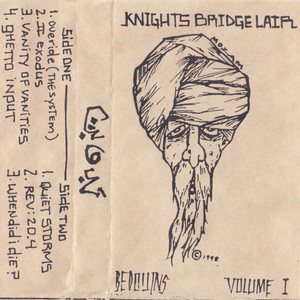 SIDE ONE
1. overide (THE SYSTEM)
2. II EXODUS
3. VANITY OF VANITIES
4. ghetto input
SIDE TWO
1. QUIET STORMS
2. REV: 20.4
3. WHEN did i die?
KNIGHTS BRIDGE LAIR
© 1998
BEDOUINS
VOLUME I